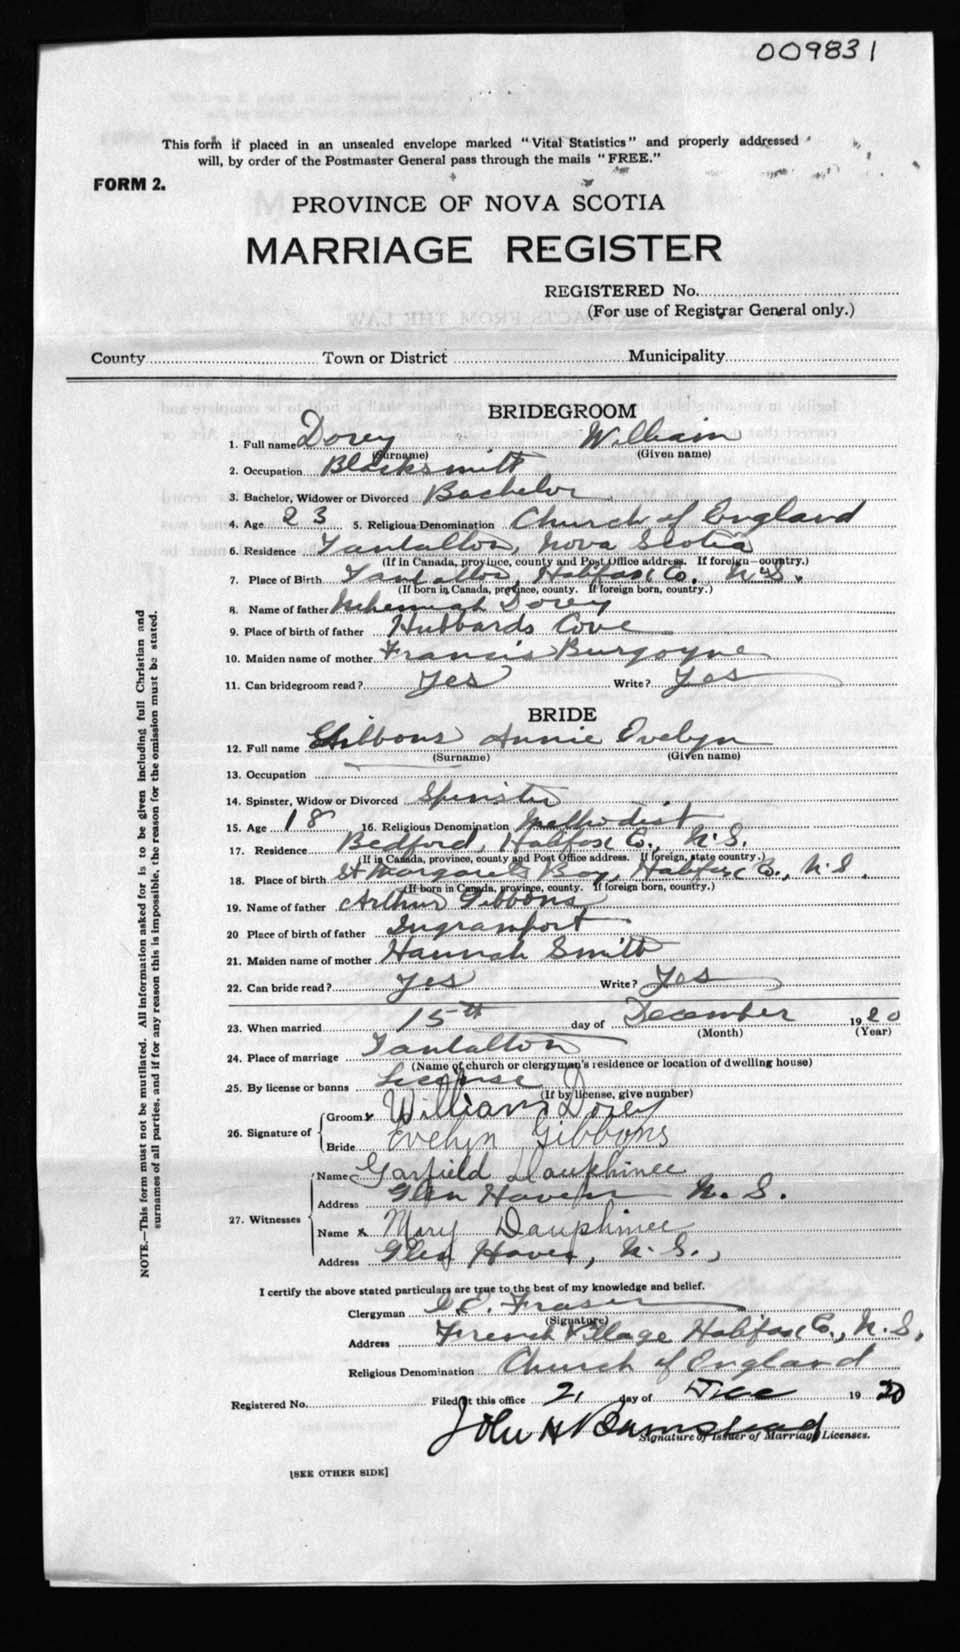 009831
This form if placed in an unsealed envelope marked "Vital Statistics" and properly addressed
will, by order of the Postmaster General pass through the mails "FREE."
FORM 2.
PROVINCE OF NOVA SCOTIA
MARRIAGE REGISTER
REGISTERED No.
(For use of Registrar General only.)
County Town or District Municipality
BRIDEGROOM
1. Full name Dorey William
(Surname) (Given name)
2. Occupation Blacksmith
3. Bachelor, Widower or Divorced Bachelor
4. Age 23 5. Religious Denomination Church of England
6. Residence Tantallon, Nova Scotia
(If in Canada, province, county and Post Office address. If foreign—country.)
7. Place of Birth Tantallon, Halifax Co., N.S.
(If born in Canada, province, county. If foreign born, country.)
8. Name of father Nehemiah Dorey
9. Place of birth of father Hubbards Cove
10. Maiden name of mother Francis Burgoyne
11. Can bridegroom read? Yes Write? Yes
BRIDE
12. Full name Gibbons Annie Evelyn
(Surname) (Given name)
13. Occupation
14. Spinster, Widow or Divorced Spinster
15. Age 18 16. Religious Denomination Methodist
17. Residence Bedford, Halifax Co., N.S.
(If in Canada, province, county and Post Office address. If foreign, state country.)
18. Place of birth St Margarets Bay, Halifax Co., N.S.
(If born in Canada, province, county. If foreign born, country.)
19. Name of father Arthur Gibbons
20 Place of birth of father Ingramport
21. Maiden name of mother Hannah Smith
22. Can bride read? Yes Write? Yes
23. When married 15th day of December 1920
(Month) (Year)
24. Place of marriage Tantallon
(Name of church or clergyman's residence or location of dwelling house)
25. By license or banns License
(If by license, give number)
26. Signature of Groom x William Dorey
Bride Evelyn Gibbons
27. Witnesses Name Garfield Dauphinee
Address Glen Haven N.S.
Name x Mary Dauphinee
Address Glen Haven, N.S.,
I certify the above stated particulars are true to the best of my knowledge and belief.
Clergyman Fraser
(Signature)
Address French Village Halifax Co., N.S.
Religious Denomination Church of England
Registered No. Filed at this office 21 day of Dec 1920
John H Barnstead
Signature of Issuer of Marriage Licenses.
[SEE OTHER SIDE]
NOTE.—This form must not be mutilated. All information asked for is to be given including full Christian and
surnames of all parties, and if for any reason this is impossible, the reason for the omission must be stated.